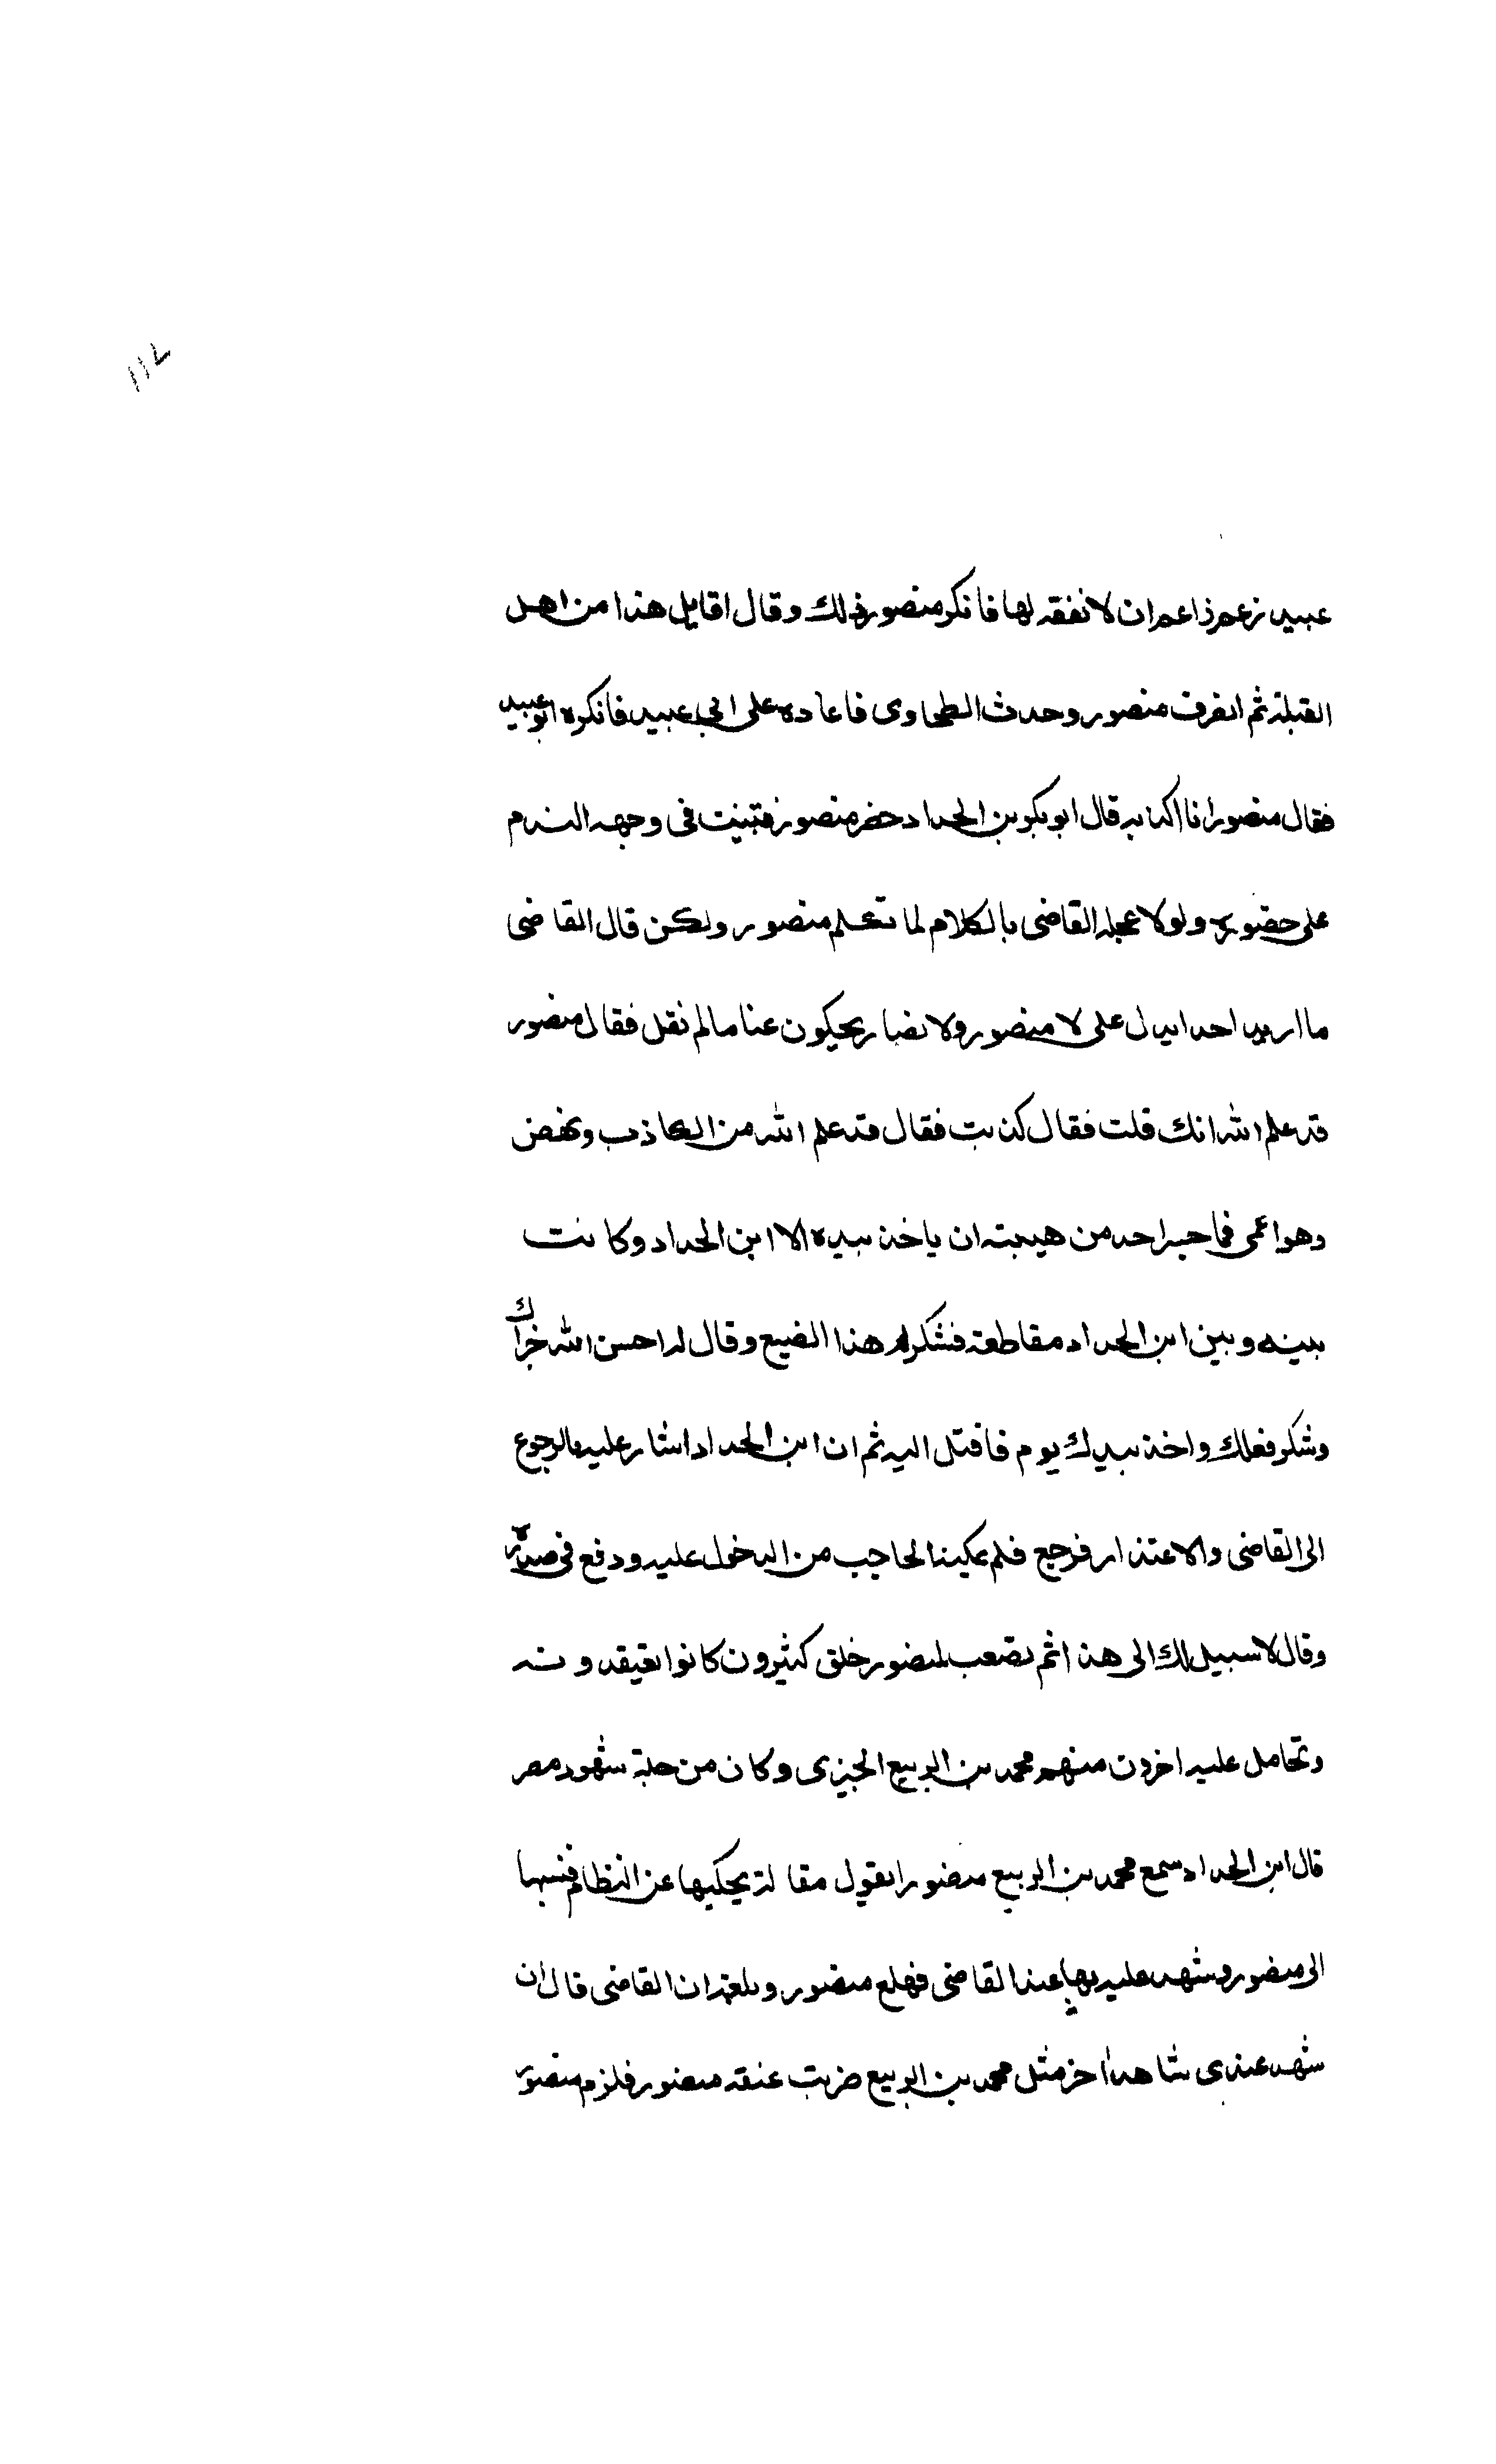 112
عبيد زعم زاعم ان لا نفقه لها فانكر منصور ذلك وقال اقايل هذا من اهل
القبلة ثم انصرف منصور وحدث الطحاوى فاعاده على ابي عبيد فانكره ابو عبيد
فقال منصور انا اكذبه قال ابو بكر بن الحداد حضر منصور فتبينت فى وجهه الندم
على حضوره ولولا عجله القاضى بالكلام لما تكلم منصور ولكن قال القاضى
ما اريد احدا يدل على لا منصور ولا نصار يحكون عنا مالم نقل فقال منصور
قد علم الله انك قلت فقال كذبت فقال قد علم الله من الكاذب ونهض
وهو اعمى فما جسر احد من هيبته ان ياخذ بيده الا ابن الحداد وكانت
بينه وبين ابن الحداد مقاطعة فشكر له هذا الصنيع وقال له احسن الله جزاك
وشكر فعلك واخذ بيدك يوم فاقتك اليه ثم ان ابن الحداد اشار عليه بالرجوع
الى القاضى والاعتذار فرجع فلم يمكينه الحاجب من الدخول عليه ودفع فى صدره
وقال لا سبيل لك الى هذا ثم تعصب لمنصور خلق كثيرون كانوا يعتقدونه
وتحامل عليه اخرون منهم محمد بن الربيع الجيزى وكان من جلة شهود مصر
قال ابن الحداد سمع محمد بن الربيع منصورا يقول مقالة يحكيها عن النظام فنسبها
الى منصور وشهد عليه بها عند القاضى فهلع منصور وبلغه ان القاضى قال ان
شهد عندى شاهد اخر مثل محمد بن الربيع ضربت عنقه منصور فلزم منصور